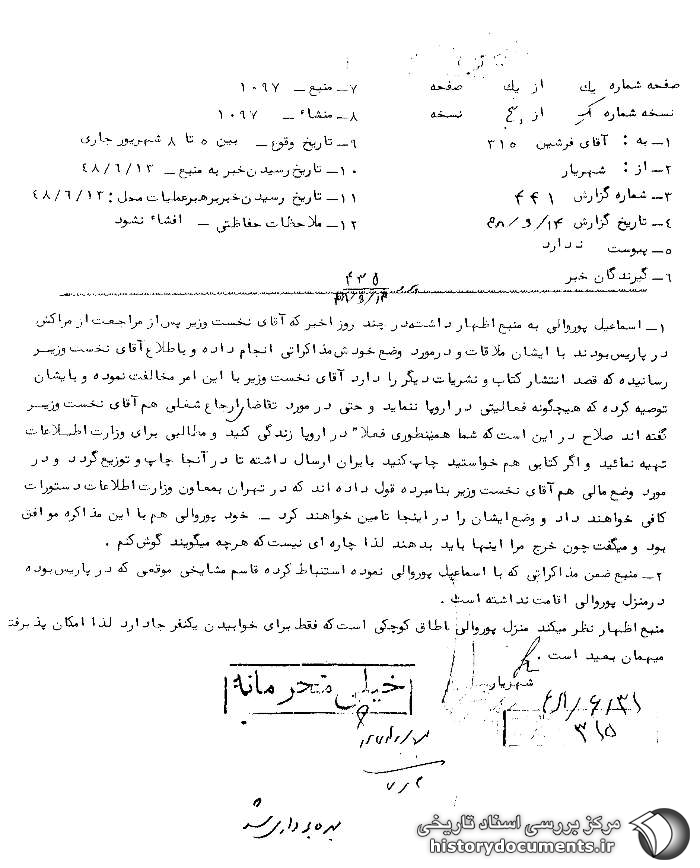 صفحه شماره یك از یك صفحه
نسخه شماره از نسخه
۱ـ به : آقای فرشین ۳۱۵
۲ـ از : شهریار
۳ـ شماره گزارش ۴۴۱
۴ـ تاریخ گزارش
۵ـ پیوست ندارد
۶ـ گیرندگان خبر
۷ـ منبع ـ ۱۰۹۷
۸ـ منشاء ـ ۱۰۹۷
۹ـ تاریخ وقوع ـ بین ۵ تا ۸ شهریور جاری
۱۰ـ تاریخ رسیدن خبر به منبع ـ ۴۸/۶/۱۳
۱۱ـ تاریخ رسیدن خبر برهبر عملیات محل : ۴۸/۶/۱۳
۱۲ـ ملاحظات حفاظتی ـ افشاء نشود
۴۳۵
۱ـ اسماعیل پوروالی به منبع اظهار داشته در چند روز اخیر که آقای نخست وزیر پس از مراجعت از مراکش
در پاریس بودند با ایشان ملاقات و در مورد وضع خودش مذاکراتی انجام داده و باطلاع آقای نخست وزیر
رسانیده که قصد انتشار کتاب و نشریات دیگر را دارد آقای نخست وزیر با این امر مخالفت نموده و بایشان
توصیه کرده که هیچگونه فعالیتی در اروپا ننماید و حتی در مورد تقاضا ارجاع شغلی هم آقای نخست وزیر
گفته اند صلاح در این است که شما همینطوری فعلا" در اروپا زندگی کنید و مطالبی برای وزارت اطلاعات
تهیه نمائید و اگر کتابی هم خواستید چاپ کنید بایران ارسال داشته تا در آنجا چاپ و توزیع گردد و در
مورد وضع مالی هم آقای نخست وزیر بنامبرده قول داده اند که در تهران بمعاون وزارت اطلاعات دستورات
کافی خواهند داد و وضع ایشان را در اینجا تامین خواهند کرد ـ خود پوروالی هم با این مذاکره موافق
بود و میگفت چون خرج مرا اینها باید بدهند لذا چاره ای نیست که هرچه میگویند گوش کنم .
۲ـ منبع ضمن مذاکراتی که با اسماعیل پوروالی نموده استنباط کرده قاسم مشایخی موقعی که در پاریس بوده
در منزل پوروالی اقامت نداشته است .
منبع اظهار نظر میکند منزل پوروالی اطاق کوچکی است که فقط برای خوابیدن یکنفر جا دارد لذا امکان پذیرفتن
میهمان بعید است .
شهریار
خیلی محرمانه
۳۱۵
بهره برداری شد
مرکز بررسی اسناد تاریخی
historydocuments.ir